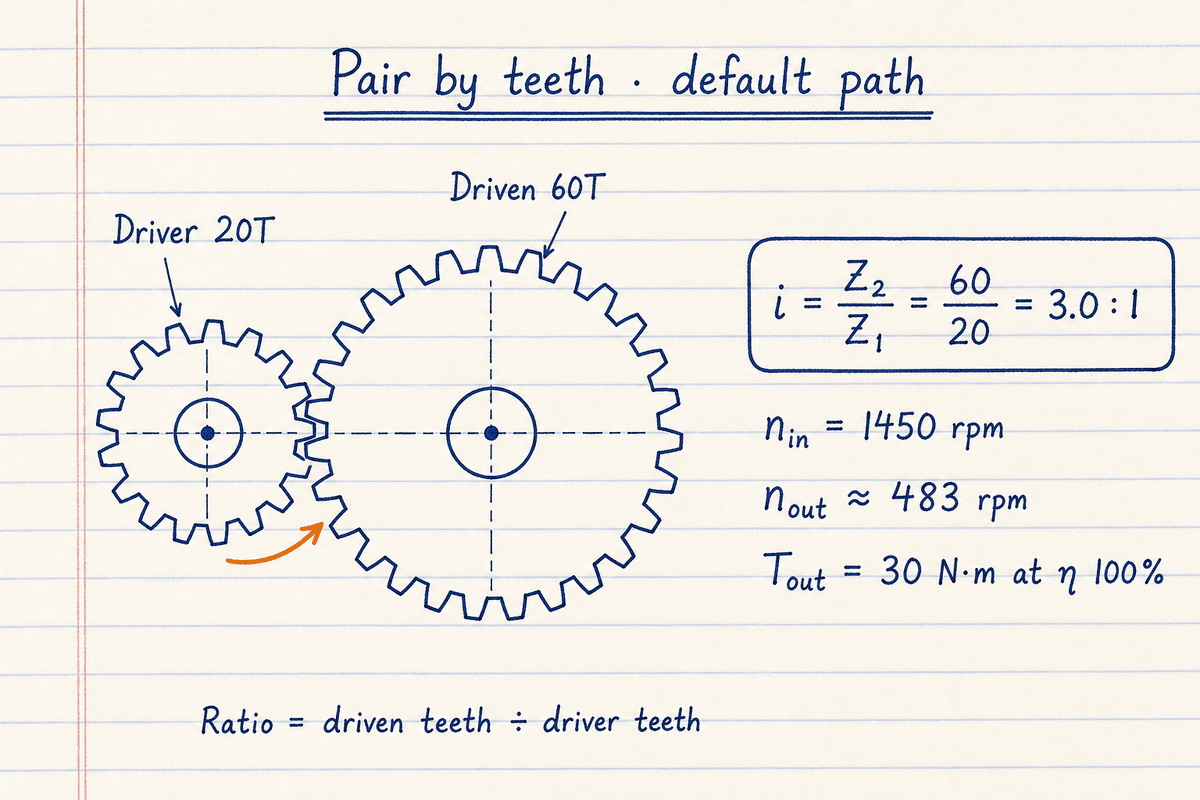 Pair by teeth · default path
Driven 60T
Driver 20T
i = Z₂/Z₁ = 60/20 = 3.0 : 1
n_in = 1450 rpm
n_out ≈ 483 rpm
T_out = 30 N·m at η 100%
Ratio = driven teeth ÷ driver teeth